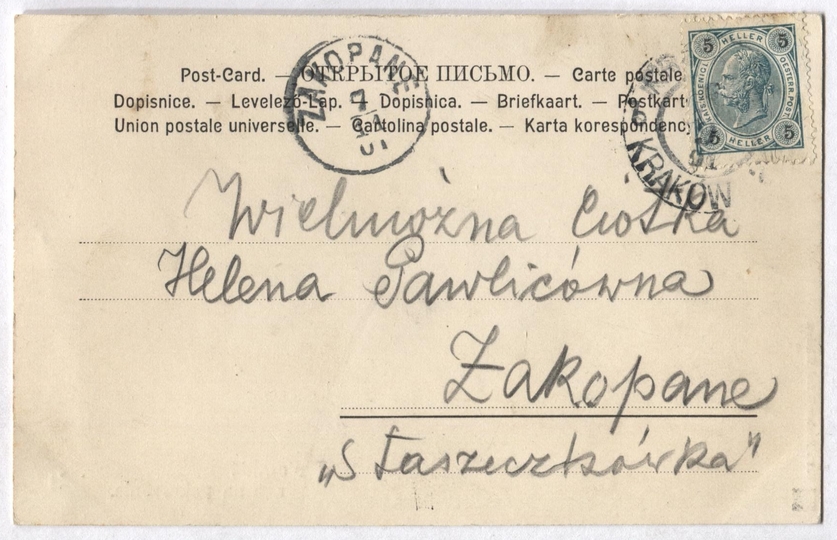 Post-Card. — ОТКРЫТОЕ ПИСЬМО. — Carte postale
Dopisnice. — Levelező-Lap. — Dopisnica. — Briefkaart. — Postkart
Union postale universelle. — Cartolina postale. — Karta korespondency
ZAKOPANE
KRAKÓW
5 HELLER 5
5 HELLER 5
Wielmożna Ciotka
Helena Pawlicówna
Zakopane
„Staszeczkówka"